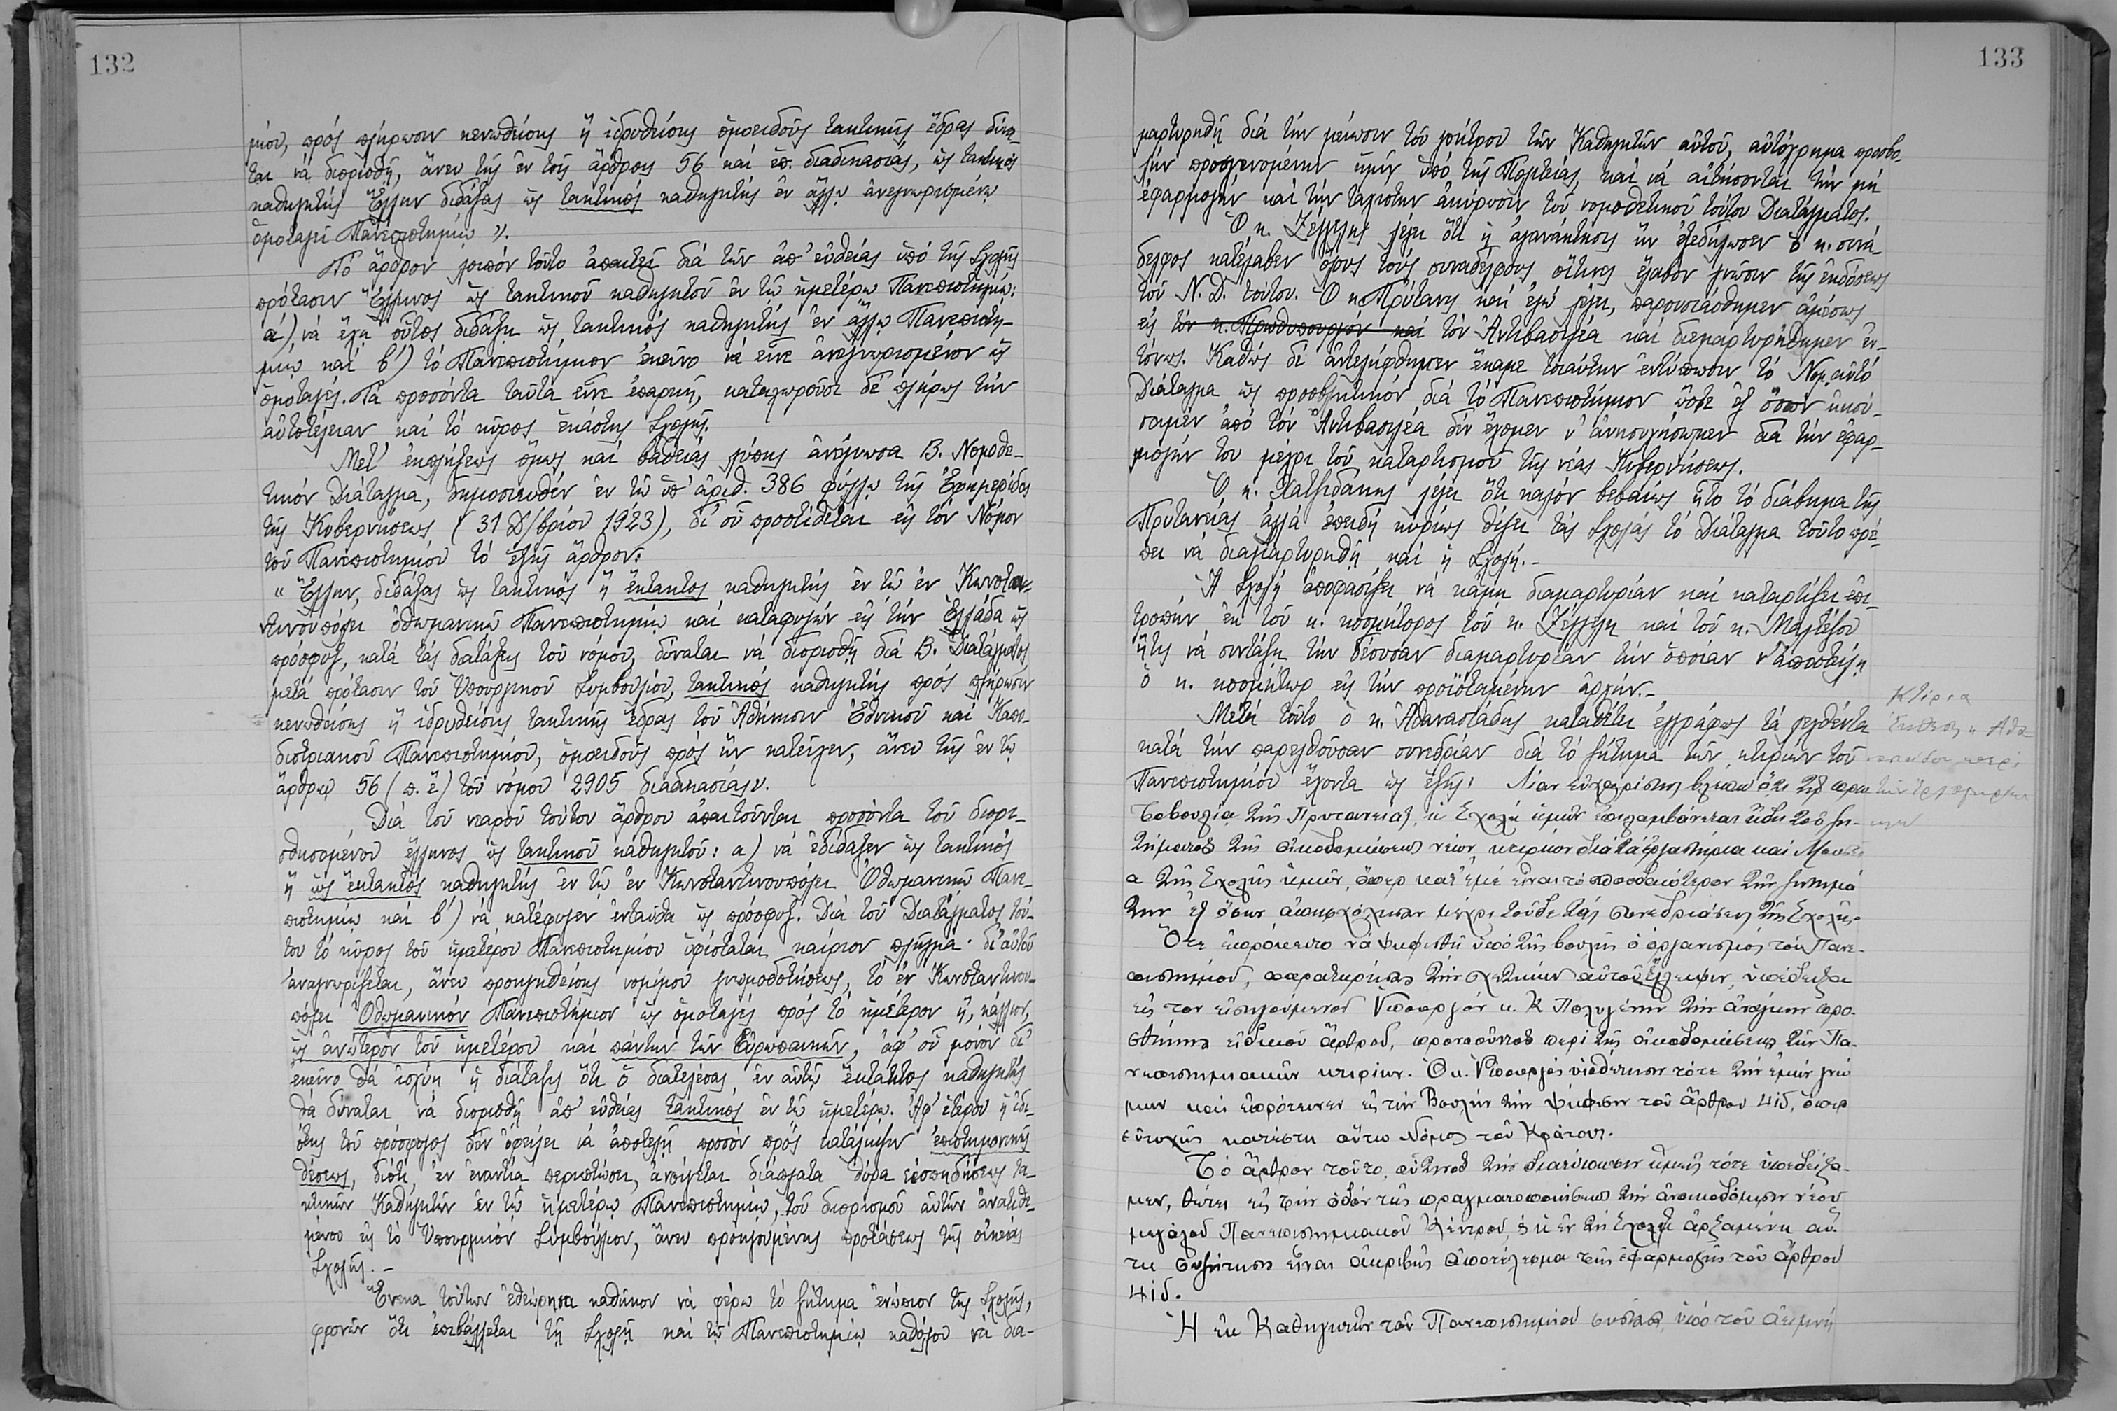 132
μίου, πρός πλήρωσιν κενωθείσης ἤ ἱδρυθείσης ὁμοειδοῦς τακτικῆς ἕδρας δύνα-
ται νά διορισθῇ, ἄνευ τῆς ἐν τοῖς ἄρθροις 56 καί ἑπ. διαδικασίας, ὡς τακτικός
καθηγητής Ἕλλην διδάξας ὡς τακτικός καθηγητής ἐν ἄλλῳ ἀνεγνωρισμένῳ
ὁμοταγεῖ Πανεπιστημίῳ ».
Τό ἄρθρον λοιπόν τοῦτο ἀπαιτεῖ διά τήν ἀπ' εὐθείας ὑπό τῆς Σχολῆς
πρότασιν Ἕλληνος ὡς τακτικοῦ καθηγητοῦ ἐν τῷ ἡμετέρῳ Πανεπιστημίῳ:
α΄) νά ἔχῃ οὗτος διδάξῃ ὡς τακτικός καθηγητής ἐν ἄλλῳ Πανεπιστη-
μίῳ καί β΄) τό Πανεπιστήμιον ἐκεῖνο νά εἶνε ἀνεγνωρισμένον ὡς
ὁμοταγές. Τά προσόντα ταῦτα εἶνε ἐπαρκῆ, κατοχυροῦσι δέ πλήρως τήν
αὐτοτέλειαν καί τό κῦρος ἑκάστης Σχολῆς.
Μετ' ἐκπλήξεως ὅμως καί βαθείας λύπης ἀνέγνωσα Β. Νομοθε-
τικόν Διάταγμα, δημοσιευθέν ἐν τῷ ὑπ' ἀριθ. 386 φύλλῳ τῆς Ἐφημερίδος
τῆς Κυβερνήσεως (31 Δ/βρίου 1923), δι' οὗ προστίθεται εἰς τόν Νόμον
τοῦ Πανεπιστημίου τό ἑξῆς ἄρθρον:
« Ἕλλην, διδάξας ὡς τακτικός ἤ ἔκτακτος καθηγητής ἐν τῷ ἐν Κωνσταν-
τινουπόλει ὀθωμανικῷ Πανεπιστημίῳ καί καταφυγών εἰς τήν Ἑλλάδα ὡς
πρόσφυξ, κατά τάς διατάξεις τοῦ νόμου, δύναται νά διορισθῇ διά Β. Διατάγματος
μετά πρότασιν τοῦ Ὑπουργικοῦ Συμβουλίου, τακτικός καθηγητής πρός πλήρωσιν
κενωθείσης ἤ ἱδρυθείσης τακτικῆς ἕδρας τοῦ Ἀθήνησιν Ἐθνικοῦ καί Καπο-
διστριακοῦ Πανεπιστημίου, ὁμοειδοῦς πρός ἥν κατεῖχεν, ἄνευ τῆς ἐν τῷ
ἄρθρῳ 56 (π. ἕ) τοῦ νόμου 2905 διαδικασίας».
Διά τοῦ νεαροῦ τούτου ἄρθρου ἀπαιτοῦνται προσόντα τοῦ διορι-
σθησομένου ἕλληνος ὡς τακτικοῦ καθηγητοῦ: α) νά ἐδίδαξεν ὡς τακτικός
ἤ ὡς ἔκτακτος καθηγητής ἐν τῷ ἐν Κωνσταντινουπόλει Ὀθωμανικῷ Πανε-
πιστημίῳ καί β΄) νά κατέφυγεν ἐνταῦθα ὡς πρόσφυξ. Διά τοῦ Διατάγματος τού-
του τό κῦρος τοῦ ἡμετέρου Πανεπιστημίου ὑφίσταται καίριον πλῆγμα· δι' αὐτοῦ
ἀναγνωρίζεται, ἄνευ προηγηθείσης νομίμου γνωμοδοτήσεως, τό ἐν Κωνσταντινου-
πόλει Ὀθωμανικόν Πανεπιστήμιον ὡς ὁμοταγές πρός τό ἡμέτερον ἤ, κάλλιον,
ὡς ἀνώτερον τοῦ ἡμετέρου καί πάντων τῶν Εὐρωπαϊκῶν, ἀφ' οὗ μόνον δι'
ἐκεῖνο θά ἰσχύῃ ἡ διάταξις ὅτι ὁ διατελέσας ἐν αὐτῷ ἔκτακτος καθηγητής
θά δύναται νά διορισθῇ ἀπ' εὐθείας τακτικός ἐν τῷ ἡμετέρῳ. Ἀφ' ἑτέρου ἡ ἰδι-
ότης τοῦ πρόσφυγος δέν ὀφείλει νά ἀποτελῇ προσόν πρός κατάληψιν ἐπιστημονικῆς
θέσεως, διότι, ἐν ἐναντίᾳ περιπτώσει, ἀνοίγεται διάπλατα θύρα εἰσπηδήσεως τα-
κτικῶν Καθηγητῶν ἐν τῷ ἡμετέρῳ Πανεπιστημίῳ, τοῦ διορισμοῦ αὐτῶν ἀνατιθε-
μένου εἰς τό Ὑπουργικόν Συμβούλιον, ἄνευ προηγουμένης προτάσεως τῆς οἰκείας
Σχολῆς. –
Ἕνεκα τούτων ἐθεώρησα καθῆκον νά φέρω τό ζήτημα ἐνώπιον τῆς Σχολῆς,
φρονῶν ὅτι ἐπιβάλλεται τῇ Σχολῇ καί τῷ Πανεπιστημίῳ καθόλου νά δια-
133
μαρτυρηθῇ διά τήν μείωσιν τοῦ γοήτρου τῶν Καθηγητῶν αὐτοῦ, αὐτόχρημα προσβο-
λήν προσγενομένην ἡμῖν ὑπό τῆς Πολιτείας, καί νά αἰτήσωνται τήν μή
ἐφαρμογήν καί τήν ταχίστην ἀκύρωσιν τοῦ νομοθετικοῦ τούτου Διατάγματος.
Ὁ κ. Ζέγγελης λέγει ὅτι ἡ ἀγανάκτησις ἥν ἐξεδήλωσεν ὁ κ. συνά-
δελφος κατέλαβεν ὅλους τούς συναδέλφους οἵτινες ἔλαβον γνῶσιν τῆς ἐκδόσεως
τοῦ Ν. Δ. τούτου. Ὁ κ. Πρύτανις καί ἐγώ λέγει, παρουσιάσθημεν ἀμέσως
εἰς τόν κ. Πρωθυπουργόν καί τόν Ἀντιβασιλέα καί διεμαρτυρήθημεν ἐν-
τόνως. Καθώς δέ ἀντελήφθημεν ἔκαμε τοιαύτην ἐντύπωσιν τό Νομ. αὐτό
Διάταγμα ὡς προσβλητικόν διά τό Πανεπιστήμιον ὥστε ἐξ ὅσων ἠκού-
σαμεν ἀπό τόν Ἀντιβασιλέα δέν ἔχομεν ν' ἀνησυχήσωμεν διά τήν ἐφαρ-
μογήν του μέχρι τοῦ καταρτισμοῦ τῆς νέας Κυβερνήσεως.
Ὁ κ. Χατζιδάκης λέγει ὅτι καλόν βεβαίως ἦτο τό διάβημα τῆς
Πρυτανείας ἀλλά ἐπειδή κυρίως θίγει τάς Σχολάς τό Διάταγμα τοῦτο πρέ-
πει νά διαμαρτυρηθῇ καί ἡ Σχολή.–
Ἡ Σχολή ἀποφασίζει νά κάμῃ διαμαρτυρίαν καί καταρτίζει ἐπι-
τροπήν ἐκ τοῦ κ. κοσμήτορος τοῦ κ. Ζέγγελη καί τοῦ κ. Μαλτέζου
ἥτις νά συντάξῃ τήν δέουσαν διαμαρτυρίαν τήν ὁποίαν ν' ἀποστείλῃ
ὁ κ. κοσμήτωρ εἰς τήν προϊσταμένην ἀρχήν.–
Μετά τοῦτο ὁ κ. Ἀθανασιάδης καταθέτει ἐγγράφως τά λεχθέντα
κατά τήν παρελθοῦσαν συνεδρίαν διά τό ζήτημα τῶν κτιρίων τοῦ
Πανεπιστημίου ἔχοντα ὡς ἑξῆς: Λίαν εὐχαρίστως βλέπω ὅτι τῇ πρω-
τοβουλίᾳ τῆς Πρυτανείας, ἡ Σχολή ἡμῶν ἐπιλαμβάνεται ἤδη τοῦ ζη-
τήματος τῆς οἰκοδομήσεως νέων κτιρίων διά τά ἐργαστήρια καί Μουσεῖ-
α τῆς Σχολῆς ἡμῶν, ὅπερ κατ' ἐμέ εἶναι τό σπουδαιότερον τῶν ζητημά-
των ἐξ ὅσων ἀπησχόλησαν μέχρι τοῦδε τάς συνεδριάσεις τῆς Σχολῆς.
Ὅτε ἐπρόκειτο νά ψηφισθῇ ὑπό τῆς βουλῆς ὁ ὀργανισμός τοῦ Πανε-
πιστημίου, παρατηρήσας τήν σχετικήν αὐτοῦ ἔλλειψιν, ὑπέδειξα
εἰς τον εἰσηγούμενον Ὑπουργόν κ. Κ Πολυγένην τήν ἀνάγκην προ-
σθήκης εἰδικοῦ ἄρθρου, προνοοῦντος περί τῆς οἰκοδομήσεως τῶν Πα-
νεπιστημιακῶν κτιρίων. Ὁ κ. Ὑπουργός υἱοθέτησεν τότε τήν ἐμήν γνώ-
μην καί ἐπρότεινεν εἰς τήν Βουλήν τήν ψήφισιν τοῦ ἄρθρου 41δ, ὅπερ
εὐτυχῶς κατέστη οὕτω Νόμος τοῦ Κράτους.
Τό ἄρθρον τοῦτο, οὗτινος τήν διατύπωσιν ἡμεῖς τότε ὑπεδείξα-
μεν, θέτει εἰς τήν ὁδόν τῆς πραγματοποιήσεως τήν ἀνοικοδόμησιν νέου
μεγάλου Πανεπιστημιακοῦ Κέντρου, ἡ δέ ἐν τῇ Σχολῇ ἀρξαμένη αὕ-
τη συζήτησις εἶναι ἀκριβῶς ἀποτέλεσμα τῆς ἐφαρμογῆς τοῦ ἄρθρου
41δ.
Ἡ ἐκ Καθηγητῶν τοῦ Πανεπιστημίου συστᾶσα ὑπό τοῦ ἀειμνή
Κτίρια
Ἔκθεσις κ. Ἀθα-